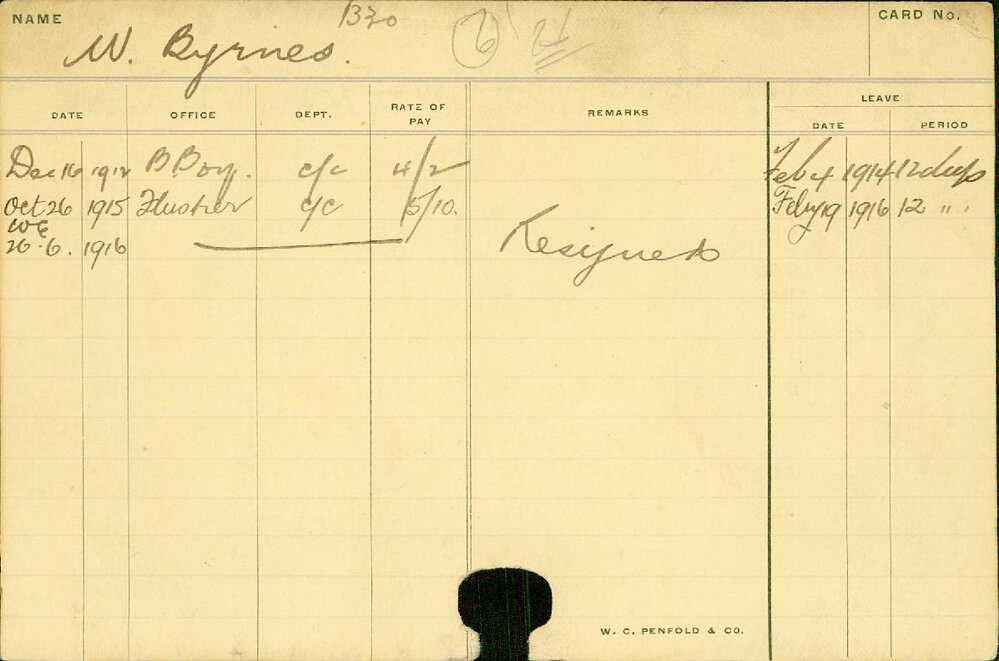 NAME B20 CARD No.
W. Byrnes. 6 21
DATE OFFICE DEPT. RATE OF PAY REMARKS LEAVE
DATE PERIOD
Dec 16 1912 B. Boy. c/c 4/2 Feb 4 1914 12 days
Oct 26 1915 Flusher c/c 5/10. Feby 19 1916 12 " "
WE
26.6. 1916 Resigned
W. C. PENFOLD & CO.